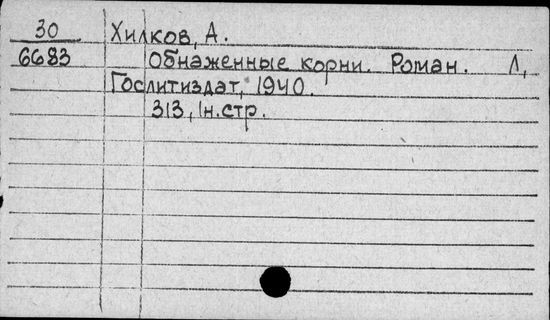 30 Хилков, А.
6683 Обнаженные корни. Роман. Л,
Гослитиздат, 1940.
313, 1н.стр.